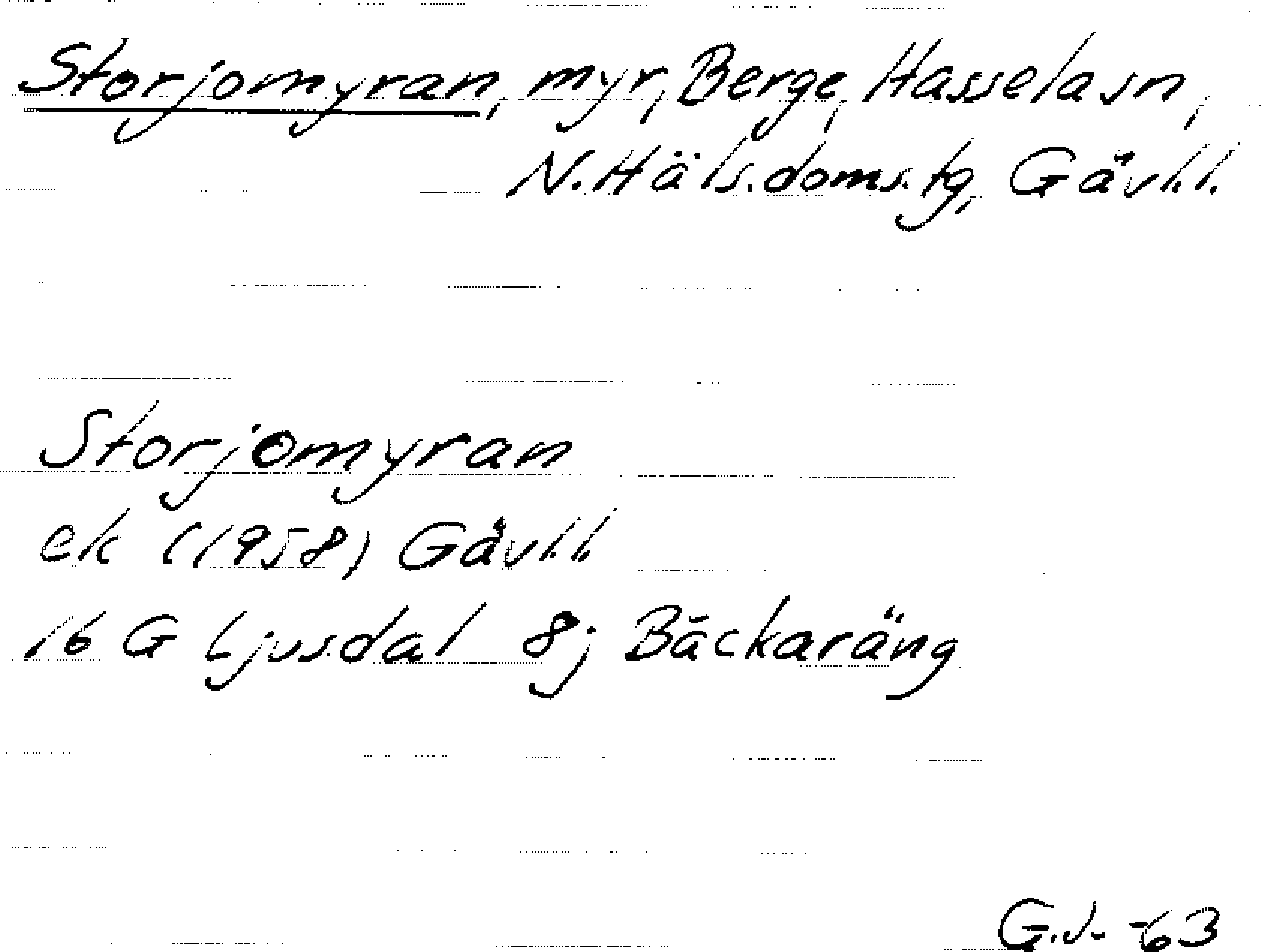 Storjomyran, myr, Berge, Hassela sn,
N. Häls. doms. tg, Gävl.l.
Storjomyran
ek (1958) Gävl.l.
16 G Ljusdal 8j Bäckaräng
G.J. -63